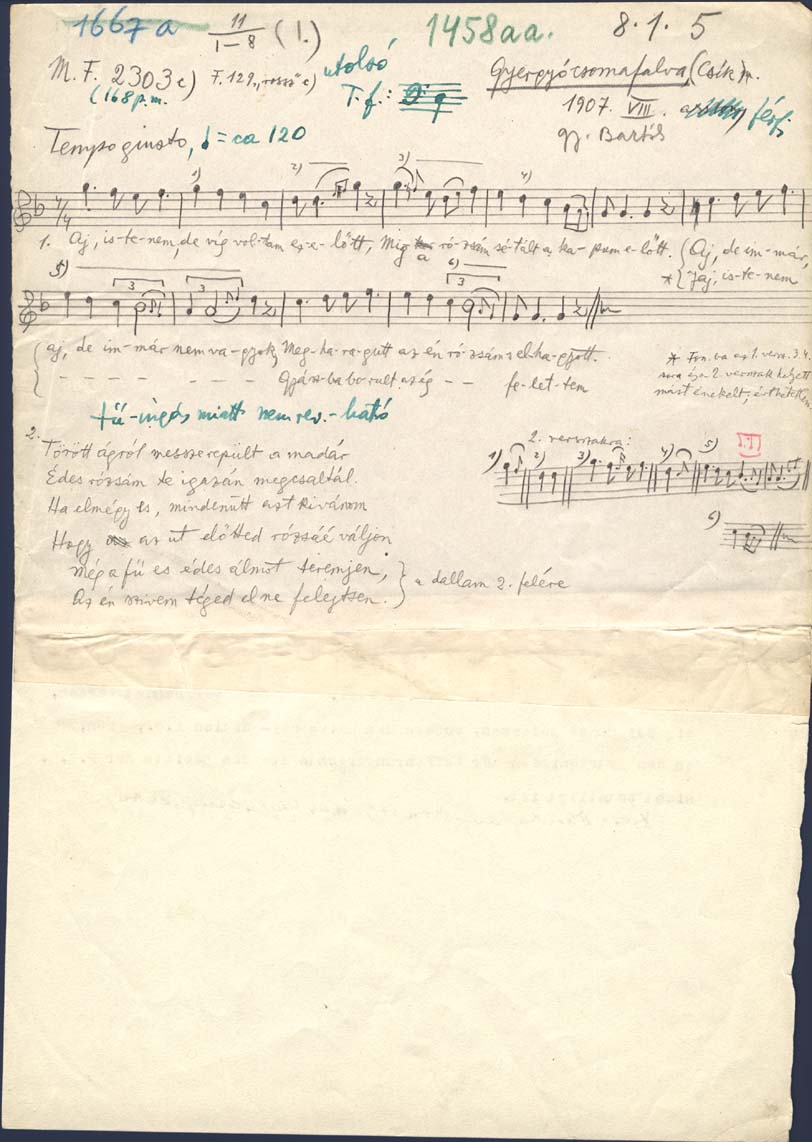 1667a 11/1–8 (1.) 1458aa. 8.1.5
M.F. 2303c) F.129 „rossz" c) utolsó Gyergyócsomafalva, (Csík) m.
(168 p.m. T.f.:
1907. VIII. férfi
Tempo giusto, ♩ = ca 120 gy. Bartók
1) 2) 3) 4)
1. Aj, is-te-nem, de víg vol-tam ez-e-lőtt, Míg a ró-zsám sé-tált az ka-pum e-lőtt. { Aj, de im-már,
* { Jaj, is-te-nem
5) 3 3 6) 3
{ aj, de im-már nem va-gyok, Meg-ha-ra-gutt az én ró-zsám s el-ha-gyott.
– – – – – – – – Gyász-ba bo-rult az ég – – fe-let-tem
* Fon.ba az 1. versz. 3.4.
sora és a 2. versszak helyett
mást énekelt; érthetetlen
tű-ugás miatt nem rev.-ható
2. Törött ágról messzerepült a madár
Édes rózsám te igazán megcsaltál.
Ha elmégy is, mindenütt azt kivánom
Hogy az ut előtted rózsáé váljon
Még a fű es édes álmot teremjen, }
Az én szivem téged el ne felejtsen. } a dallam 2. felére
2. versszakra:
1) 2) 3) 4) 5)
6)